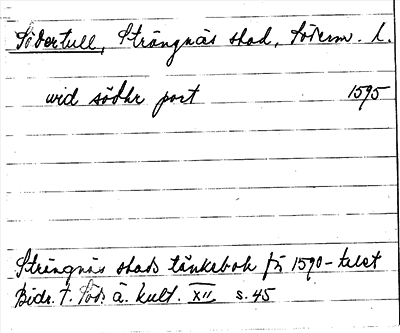 Södertull, Strängnäs stad, Söderm. l.
wid södhr port 1595
Strängnäs stads tänkebok frå 1590-talet
Bidr. t. Söd. ä. kult. XII s. 45